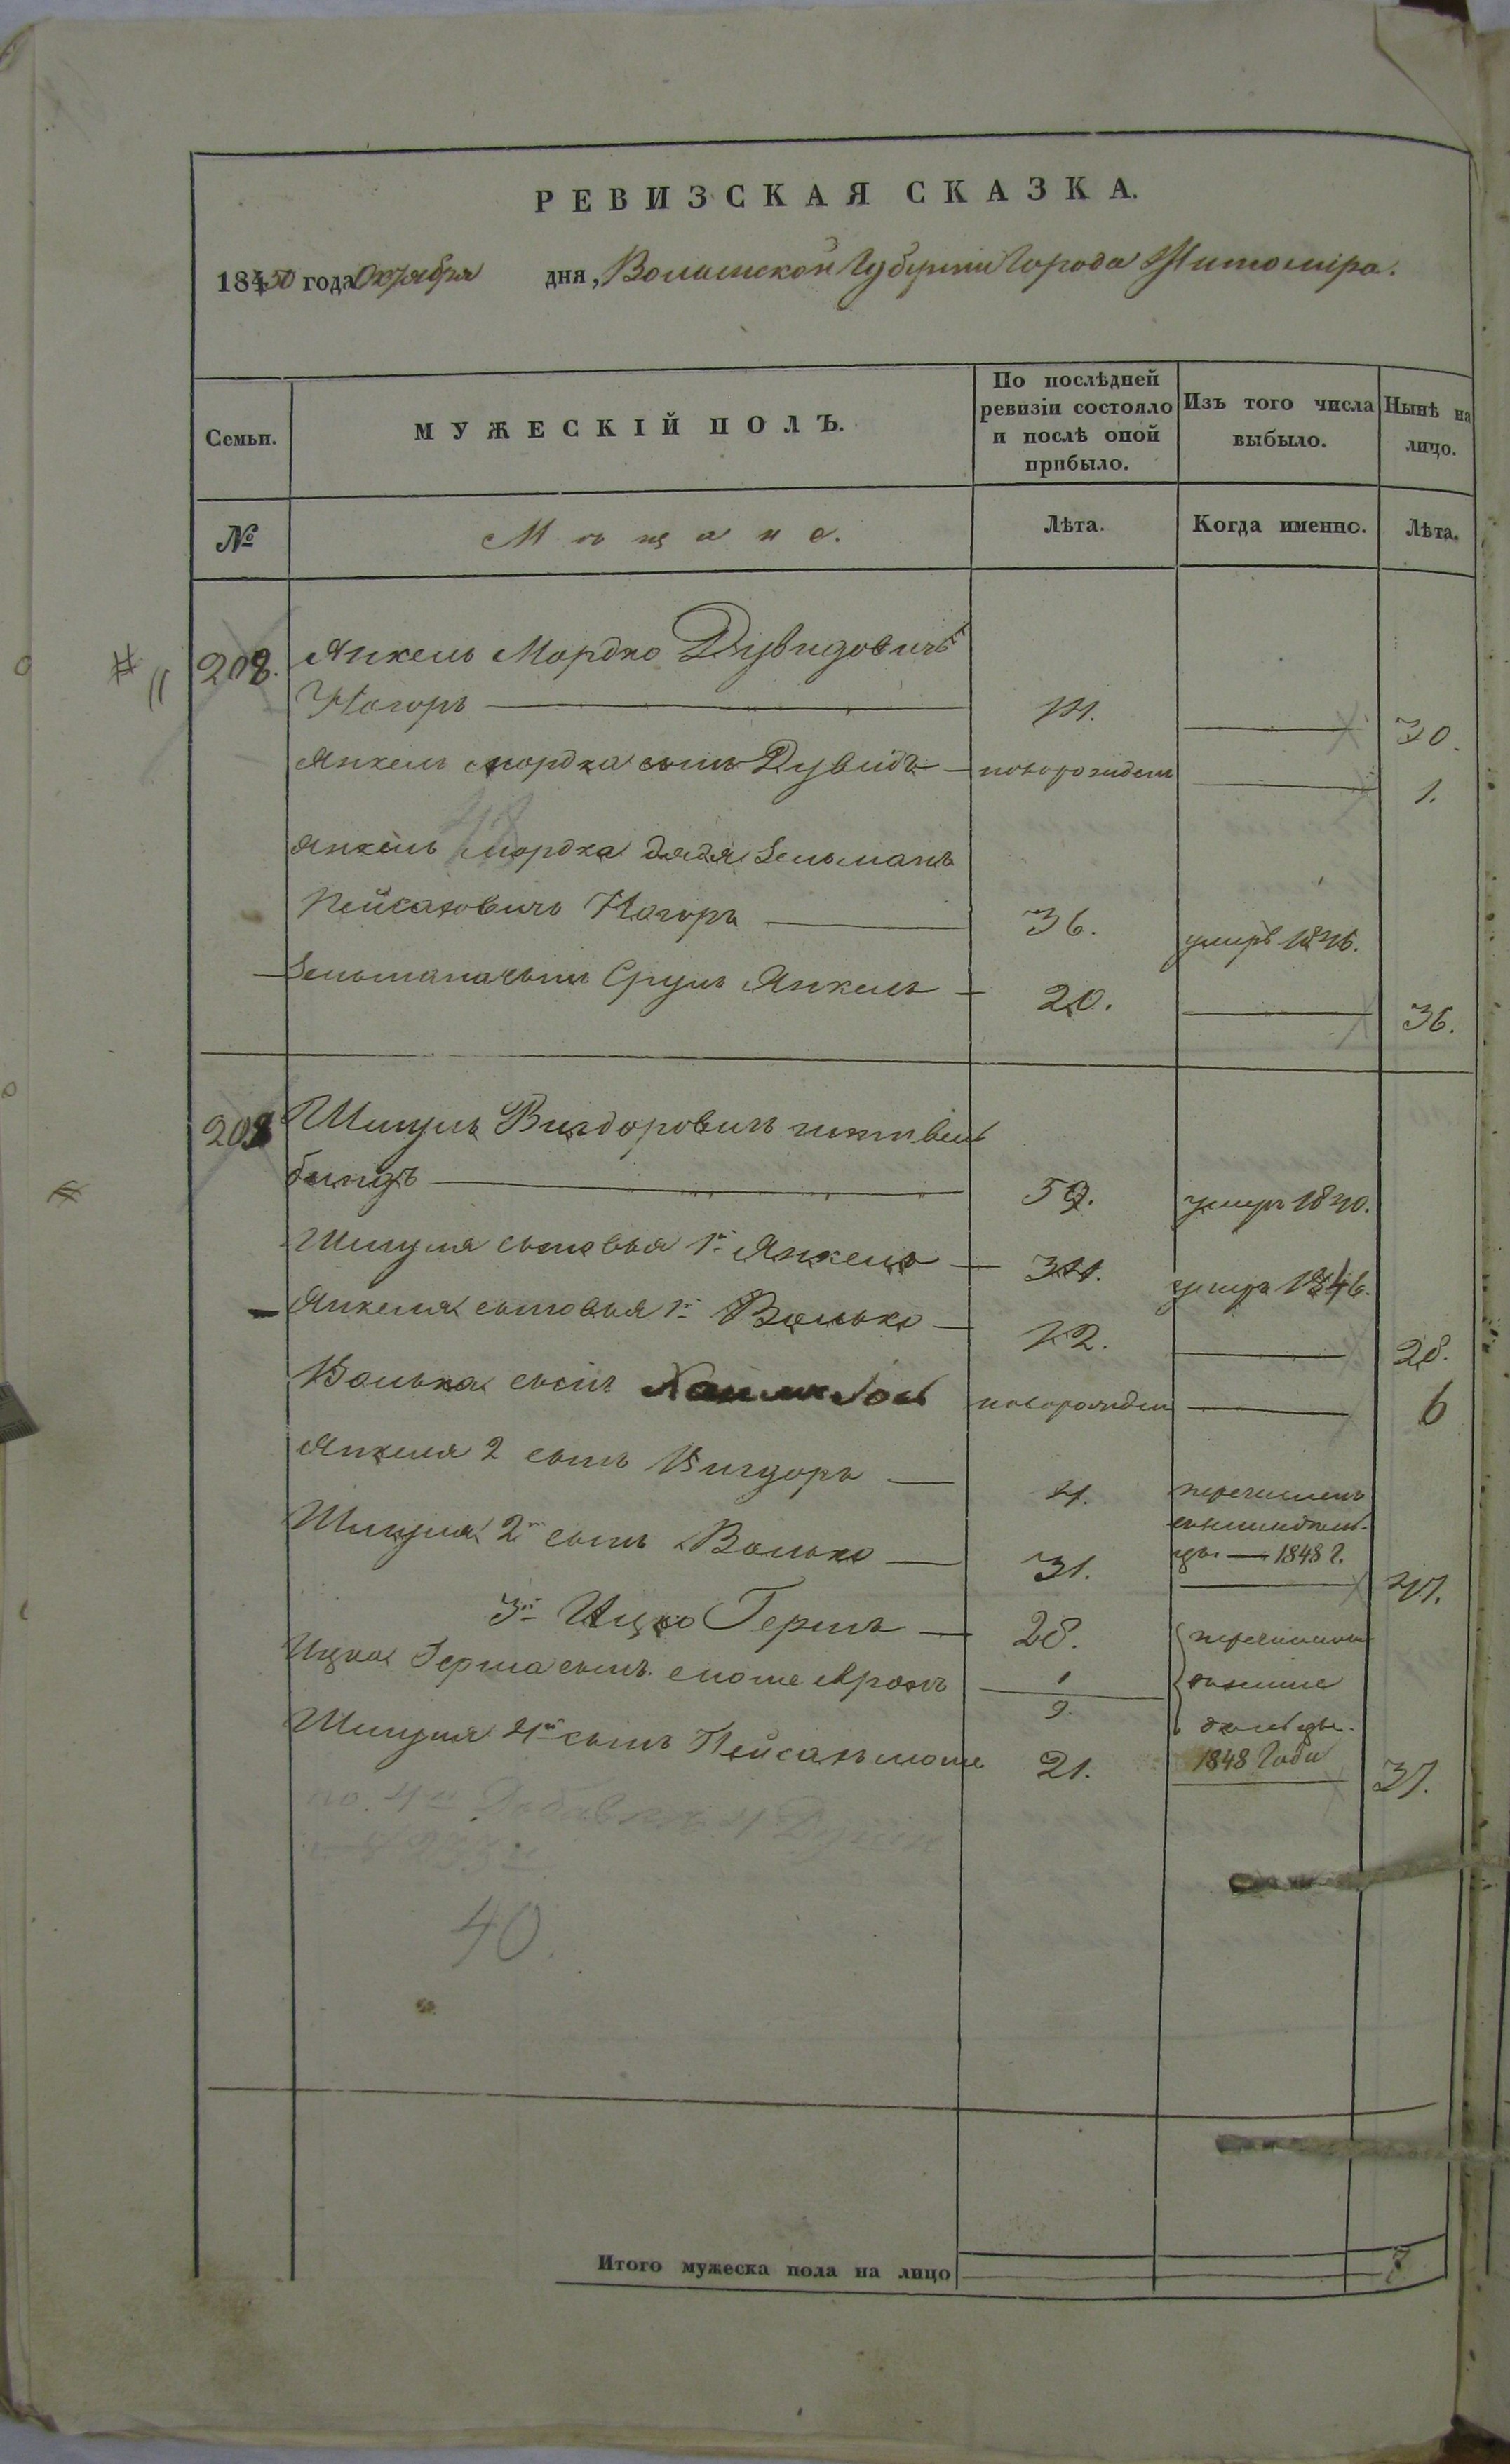 РЕВИЗСКАЯ СКАЗКА.
1850 года Октября дня, Волынской Губернии Города Житомира.
Семьи. МУЖЕСКІЙ ПОЛЪ. По послѣдней ревизіи состояло и послѣ оной прибыло. Изъ того числа выбыло. Нынѣ на лицо.
№ Мѣщане. Лѣта. Когда именно. Лѣта.
208. Янкель Мордко Дувидовичъ
Нагоръ 14. 30.
Янкель Мордка сынъ Дувидъ новорожден 1.
Янкель Мордка дядя Зельманъ
Пейсаховичъ Нагоръ 36. умеръ 1846.
Зельмана сынъ Сруль Янкель 20. 36.
209 Шмуль Вигдоровичъ
59. умеръ 1840.
Шмуля сыновья 1й Янкель 34. умеръ 1846.
Янкеля сыновья 1й Волько 12. 28.
Волька сынъ новорожден 6
Янкеля 2 сынъ Вигдоръ 4. перечисленъ
1848 г.
Шмуля 2й сынъ Волько 31. 47.
3й Ицко Гершъ 28. перечислены
Ицка Герша сынъ Мошe Аронъ 1
9.
Шмуля 4й сынъ Пейсахъ Мошe 21. 1848 Года 37.
40.
Итого мужеска пола на лицо 7